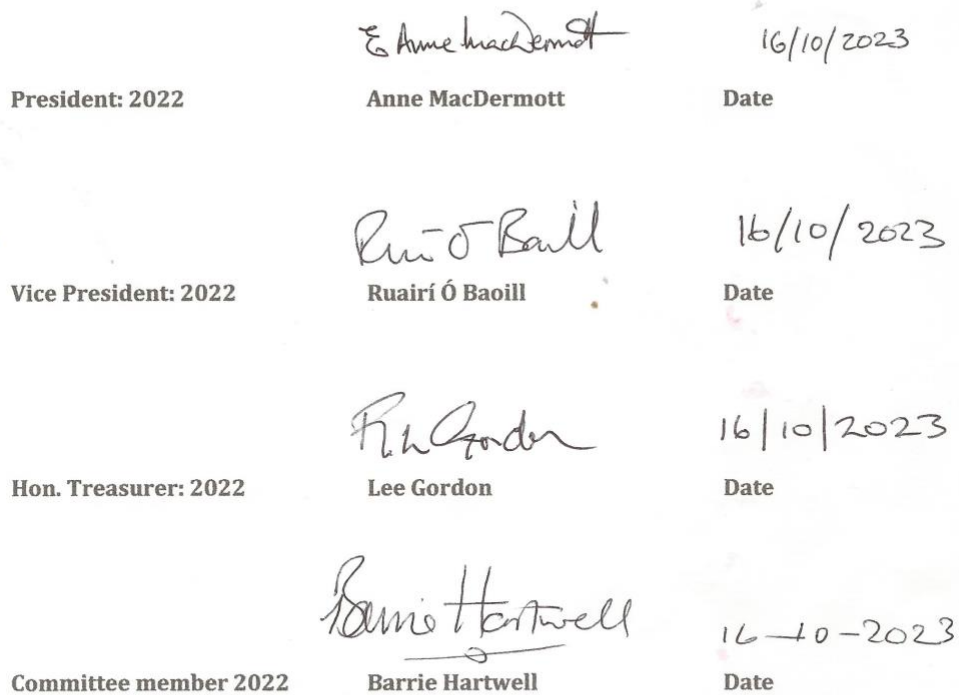 E Anne MacDermott 16/10/2023
President: 2022 Anne MacDermott Date
Ruairí Ó Baoill 16/10/2023
Vice President: 2022 Ruairí Ó Baoill Date
Gordon 16/10/2023
Hon. Treasurer: 2022 Lee Gordon Date
Barrie Hartwell 16-10-2023
Committee member 2022 Barrie Hartwell Date